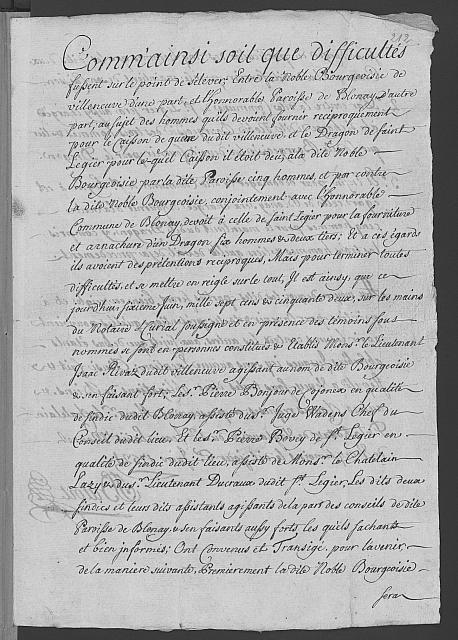 212
Comm'ainsi soit que difficultés
fussent sur le point de s'élever; Entre la Noble Bourgeoisie de
villeneuve d'une part, et l'honnorable Paroisse de Blonay d'autre
part, au sujet des hommes qu'ils devoient fournir reciproquement
pour le Caisson de guerre dudit villeneuve, et le Dragon de saint
Legier pour lequel Caisson il étoit deû, à la dite Noble
Bourgeoisie par la dite Paroisse cinq hommes, et par contre
la dite Noble Bourgeoisie, conjointement avec l'honnorable
Commune de Blonay, devoit à celle de saint Legier pour la fourniture
et arnachure d'un Dragon six hommes & deux tiers; Et à ces égards
ils avoient des prétentions reciproques, Mais pour terminer toutes
difficultés, et se mettre en reigle sur le tout, Il est ainsy, que ce
jourdhui sixieme Juin, mille sept cens & cinquante deux, sur les mains
du Notaire & Jurial soussigné et en présence des témoins sous
nommés se sont en personnes constitués & Etablis Mons.r le Lieutenant
Isaac dudit villeneuve agissant au nom de dite Bourgeoisie
& s'en faisant fort; Le S.r Pierre Bonjour de Cojonex en qualité
de sindic dudit Blonay, assisté du S.r Juge Wadens Chef du
Conseil dudit lieu, Et le S.r Pierre Bovey de S.t Légier en
qualité de sindic dudit lieu, assisté de Mons.r le Chatelain
Lazy & du S.r Lieutenant Ducraux dudit S.t Legier, Les dits deux
sindics et leurs dits assistants agissants de la part des conseils de dite
Paroisse de Blonay, & s'en faisants aussy forts, les quels sachants
et bien informés; Ont Convenus et Transigé, pour l'avenir,
de la maniere suivante, Premierement la dite Noble Bourgeoisie
sera